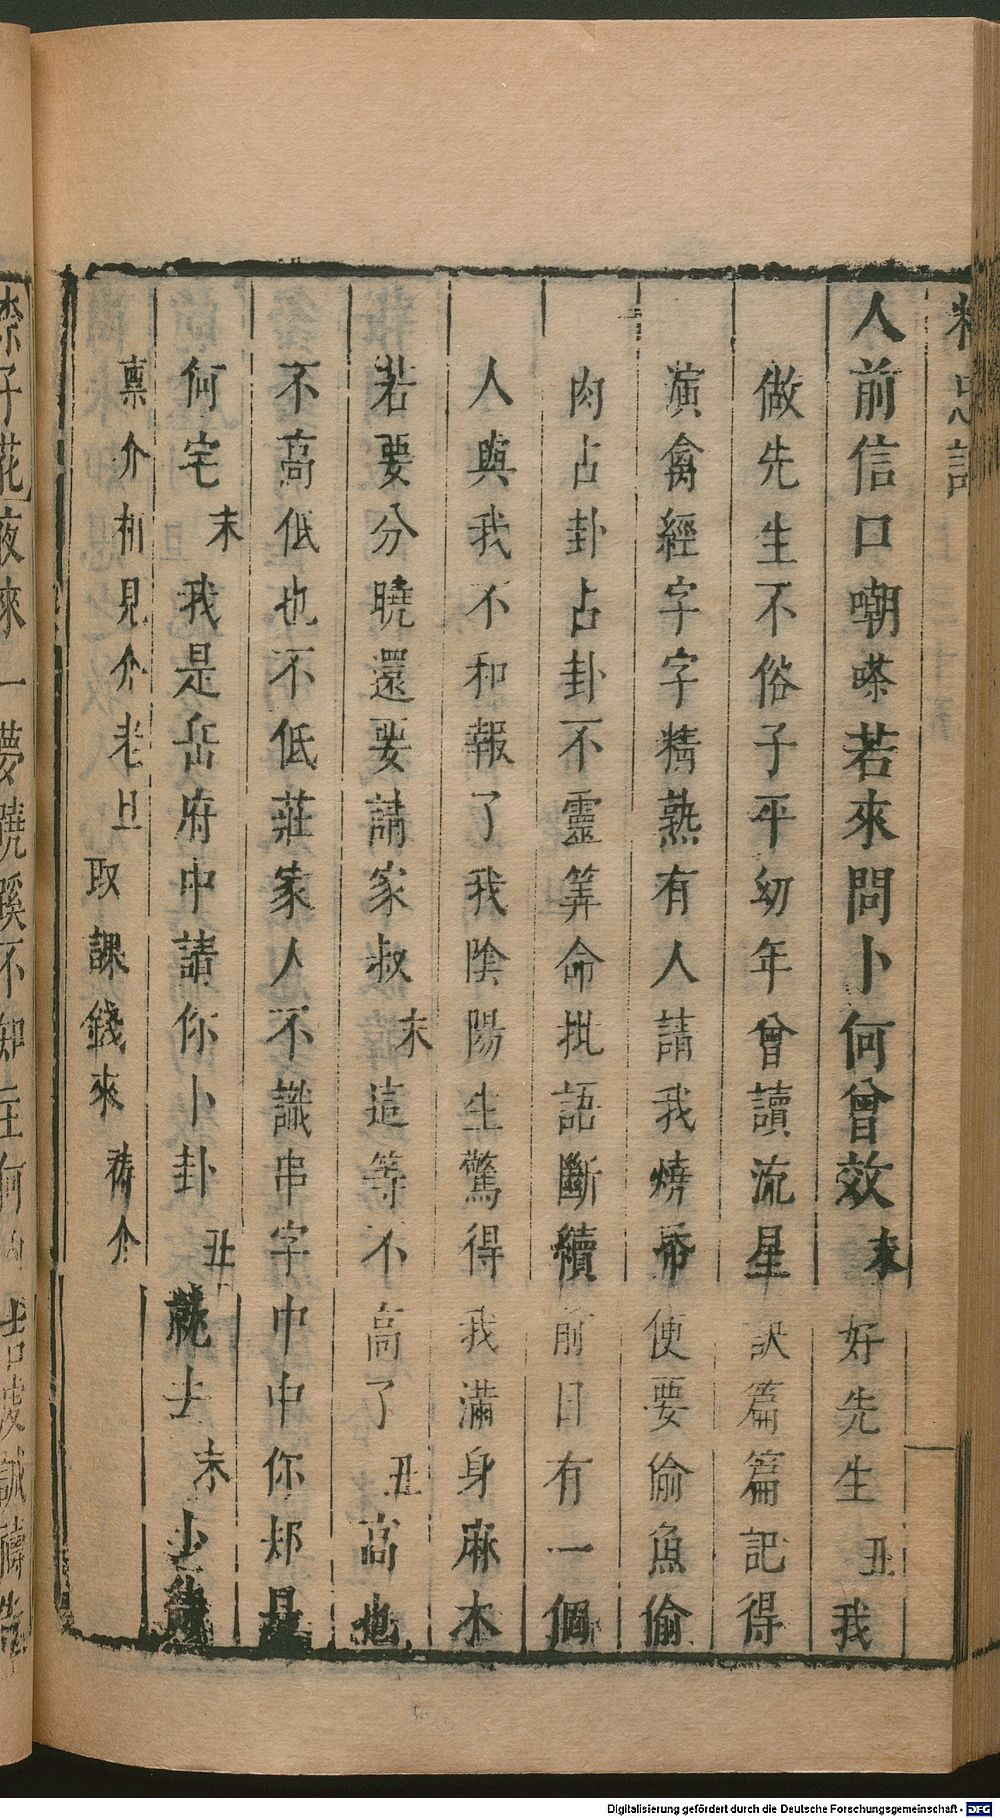 精忠記
人前信口嘲嗏若來問卜何曾效末好先生丑我
做先生不俗子平幼年曾讀流星訣篇篇記得
演禽經字字精熟有人請我燒帋便要偷魚偷
肉占卦占卦不靈筭命批語斷續前日有一個
人與我不和報了我陰陽生驚得我滿身麻木
若要分曉還要請家叔末這等不高了丑高也
不高低也不低莊家人不識串字中中你郏是
何宅末我是岳府中請你卜卦丑就去末少待
稟介相見介老旦取課錢來禱介
Digitalisierung gefördert durch die Deutsche Forschungsgemeinschaft - DFG